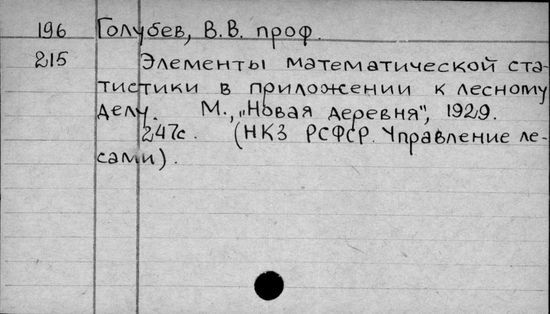 196 Голубев, В.В. проф.
215 Элементы математической ста-
тистики в приложении к лесному
делу. М., „Новая деревня", 1929.
247с. (НКЗ РСФСР. Управление ле-
сами).